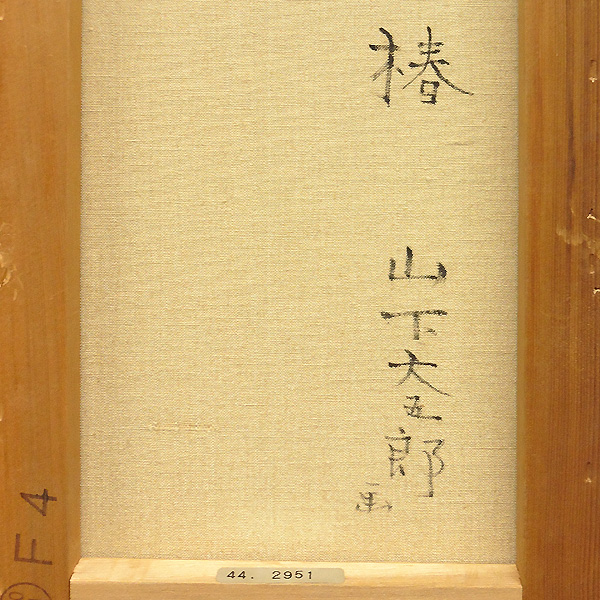 椿
山下大五郎
画
F4
44. 2951